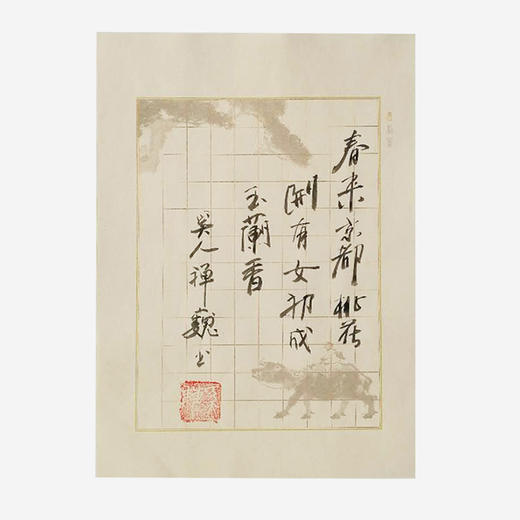 春来京都桃花
開有女初成
玉蘭香
吴人禅巍书